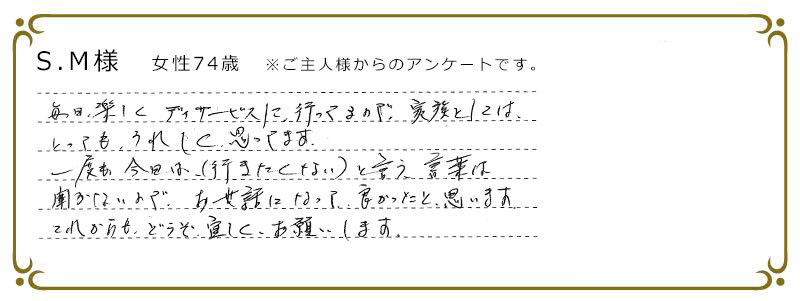 S.M様　女性74歳　※ご主人様からのアンケートです。
毎日、楽しく ディサービスに、行ってるので、家族としては、
とっても、うれしく、思ってます。
一度も、今日は、(行きたくない)と言う、言葉は
聞かないので、お世話になって、良かったと、思います
これからも、どうぞ、宜しく、お願いします。